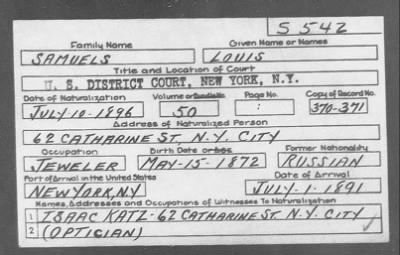 S 542
Family Name Given Name or Names
SAMUELS LOUIS
Title and Location of Court
U. S. DISTRICT COURT, NEW YORK, N.Y.
Date of Naturalization Volume or Bundle No. Page No. Copy of Record No.
JULY-10-1896 50 : 370-371
Address of Naturalized Person
62 CATHARINE ST. N.Y. CITY
Occupation Birth Date or Age Former Nationality
JEWELER MAY-15-1872 RUSSIAN
Port of Arrival in the United States Date of Arrival
NEW YORK, N.Y JULY-1-1891
Names, Addresses and Occupations of Witnesses To Naturalization
1 ISAAC KATZ-62 CATHARINE ST. N.Y. CITY
2 (OPTICIAN)